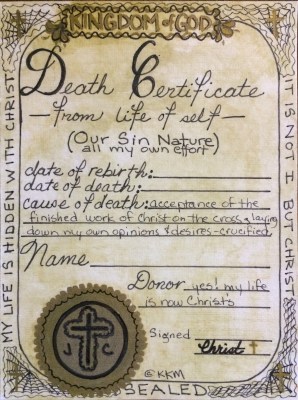 KINGDOM of GOD
Death Certificate
— from life of self —
(Our Sin Nature)
all my own effort
date of rebirth:
date of death:
cause of death: acceptance of the
finished work of Christ on the cross & laying
down my own opinions & desires - crucified
Name
Donor yes! my life
is now Christ's
Signed
Christ
J C
© KKM
SEALED
MY LIFE IS HIDDEN WITH CHRIST
IT IS NOT I BUT CHRIST